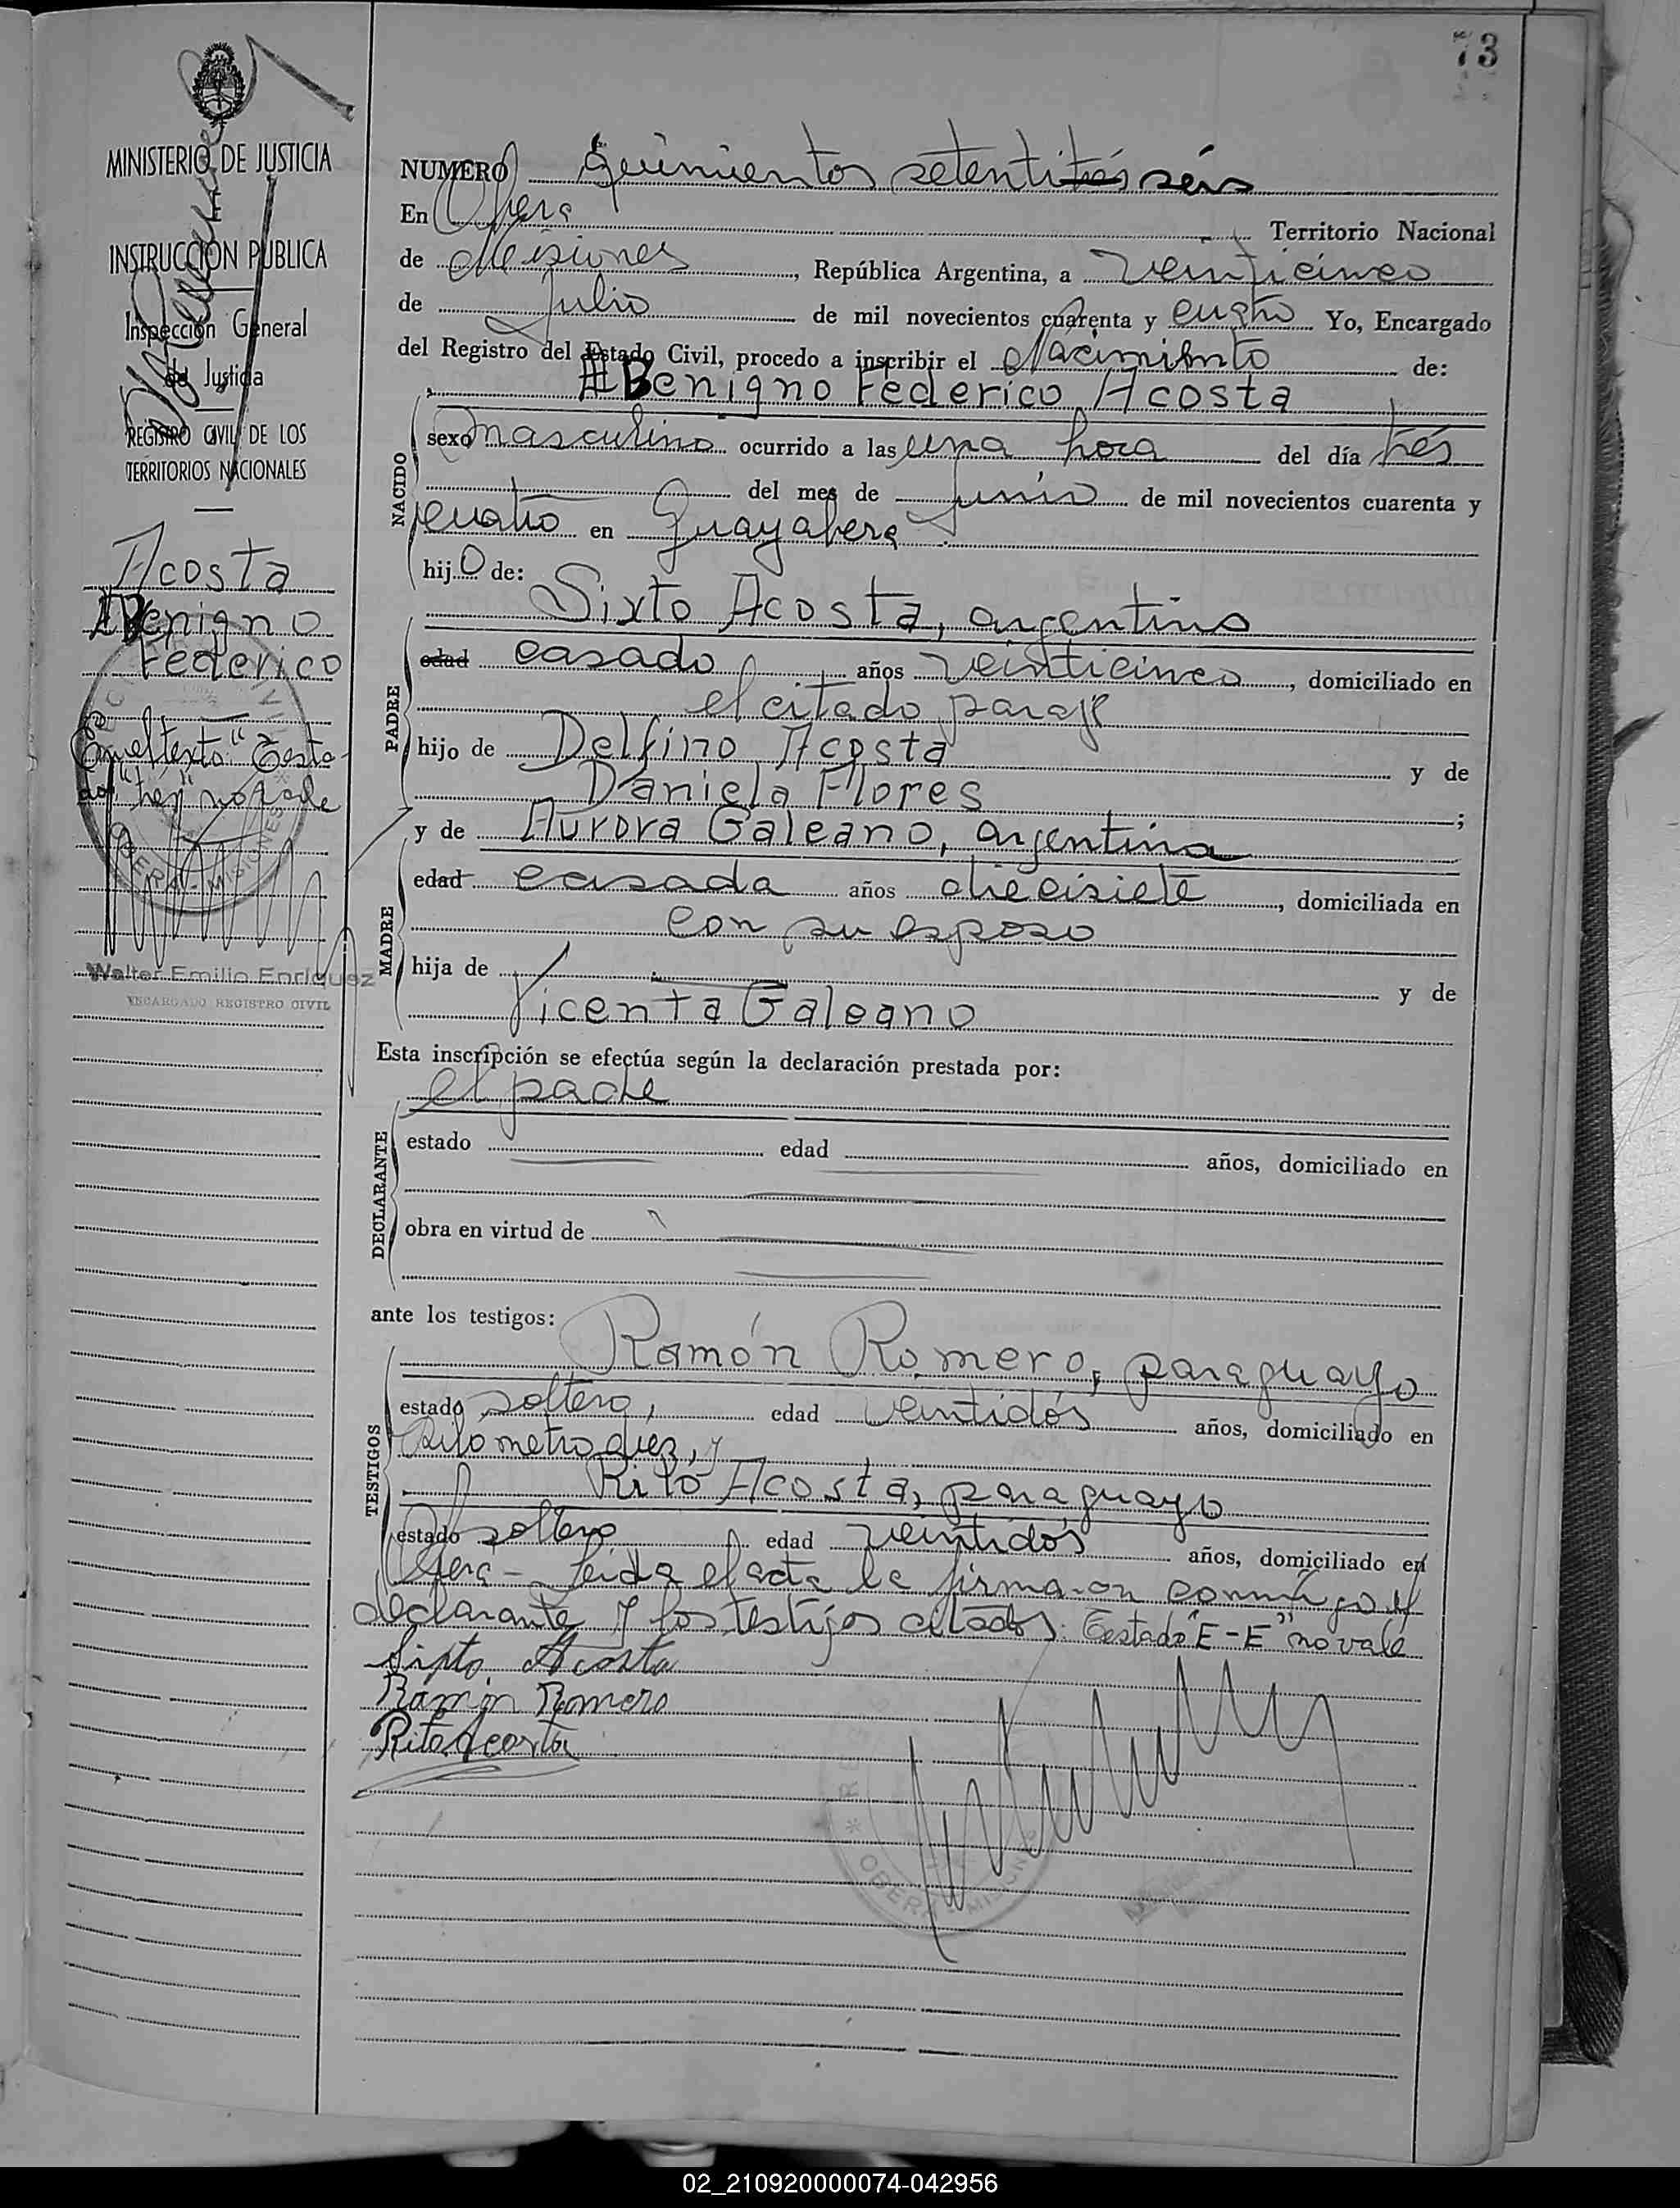 73
MINISTERIO DE JUSTICIA
INSTRUCCION PUBLICA
Inspección General
de Justicia
REGISTRO CIVIL DE LOS
TERRITORIOS NACIONALES
Acosta
Benigno
Federico
En el texto: "Testa-
do "tres" no vale
OBERA - MISIONES
Walter Emilio Enriquez
ENCARGADO REGISTRO CIVIL
NUMERO quinientos setentitrés seis
En Obera Territorio Nacional
de Misiones, República Argentina, a veinticinco
de Julio de mil novecientos cuarenta y cuatro Yo, Encargado
del Registro del Estado Civil, procedo a inscribir el Nacimiento de:
Benigno Federico Acosta
NACIDO
sexo masculino ocurrido a las una hora del día trés
del mes de junio de mil novecientos cuarenta y
cuatro en Guayabera
hijo de:
PADRE
Sixto Acosta, argentino
edad casado años veinticinco, domiciliado en
el citado paraje
hijo de Delfino Acosta y de
Daniela Flores;
MADRE
y de Aurora Galeano, argentina
edad casada años diecisiete, domiciliada en
con su esposo
hija de y de
Vicenta Galeano
Esta inscripción se efectúa según la declaración prestada por:
el padre
DECLARANTE
estado edad años, domiciliado en
obra en virtud de
ante los testigos:
TESTIGOS
Ramón Romero, paraguayo
estado soltero, edad veintidós años, domiciliado en
Kilometro diez, y
Rito Acosta, paraguayo
estado soltero edad veintidós años, domiciliado en
Obera - Leida el acta la firmaron conmigo el
declarante y los testigos citados. Testado "E-E" no vale
Sixto Acosta
Ramón Romero
Rito Acosta
OBERA MISIONES
02_210920000074-042956